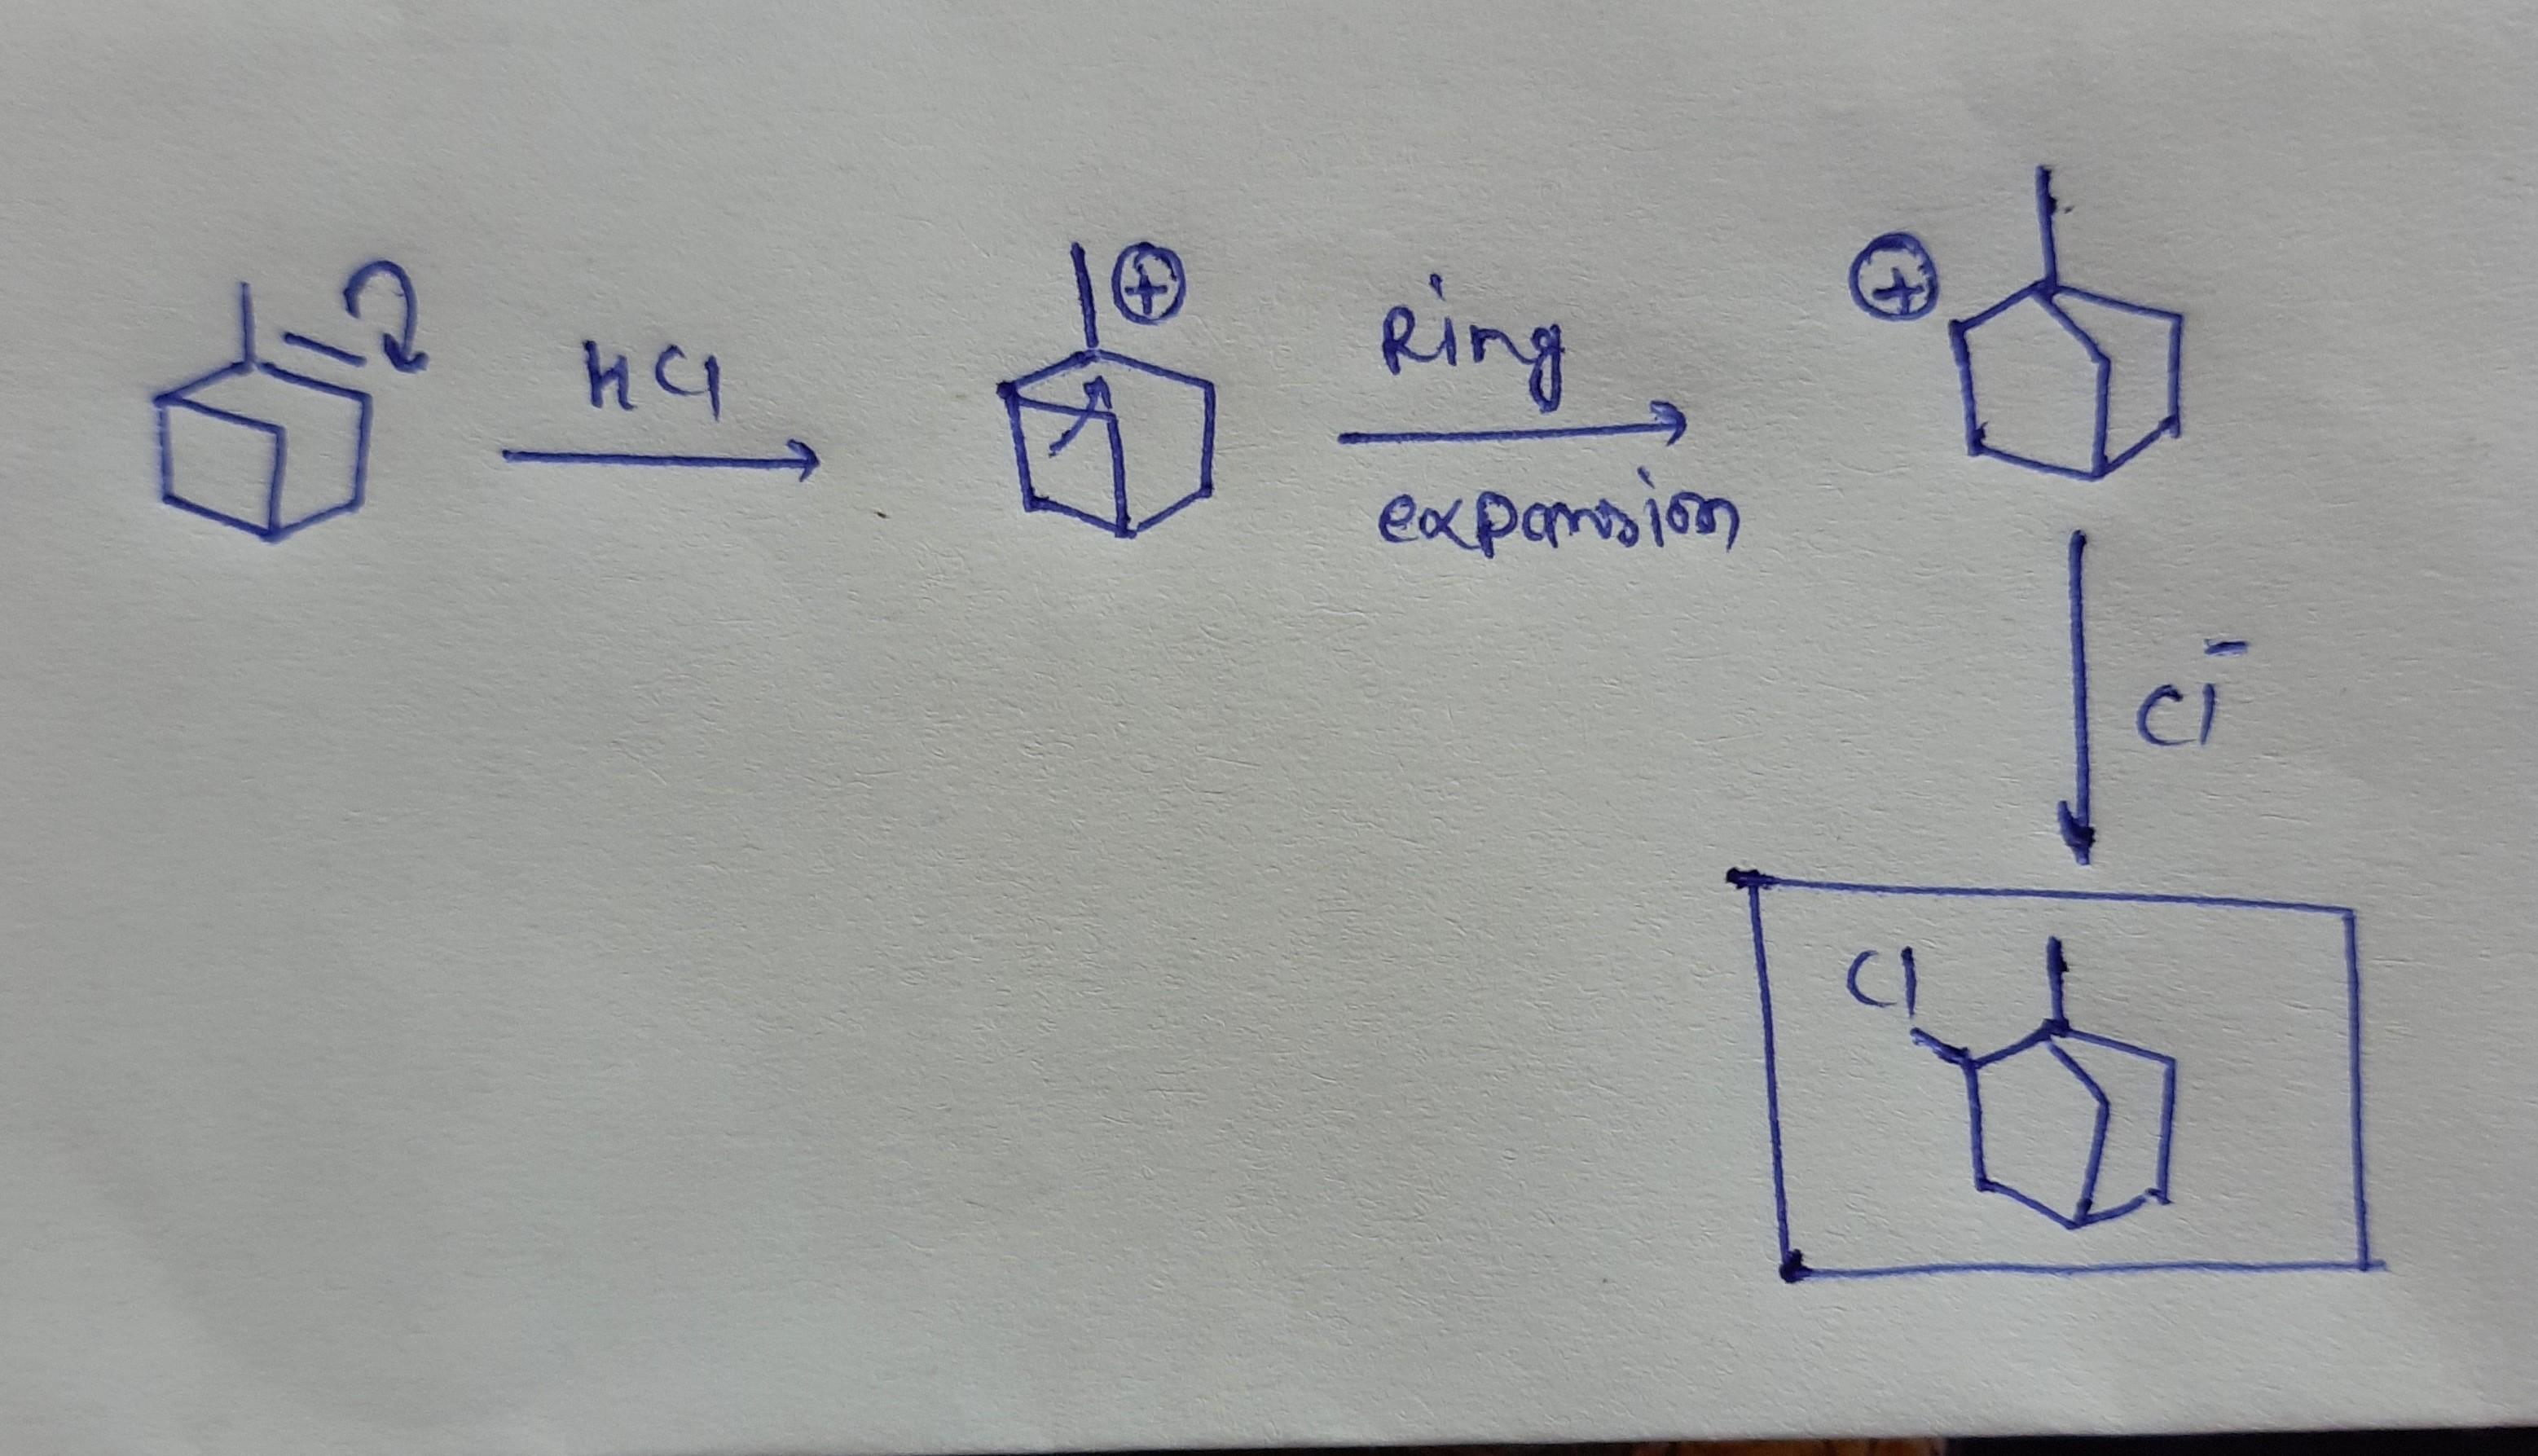 HCl
⊕
Ring
expansion
⊕
Cl⁻
Cl